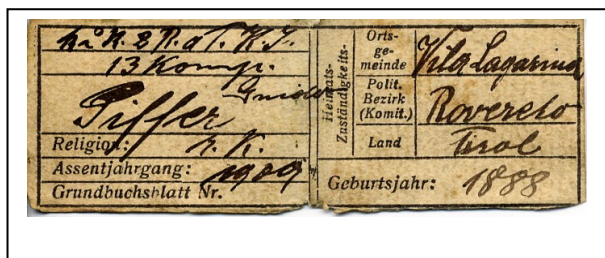 k.u.k. 2 R. d. T. K. J.
13 Komp.
Guido
Piffer
Religion: r. K.
Assentjahrgang: 1909
Grundbuchsblatt Nr.
Heimats-
Zuständigkeits-
Orts-
ge-
meinde Villa Lagarina
Polit.
Bezirk
(Komit.) Rovereto
Land Tirol
Geburtsjahr: 1888